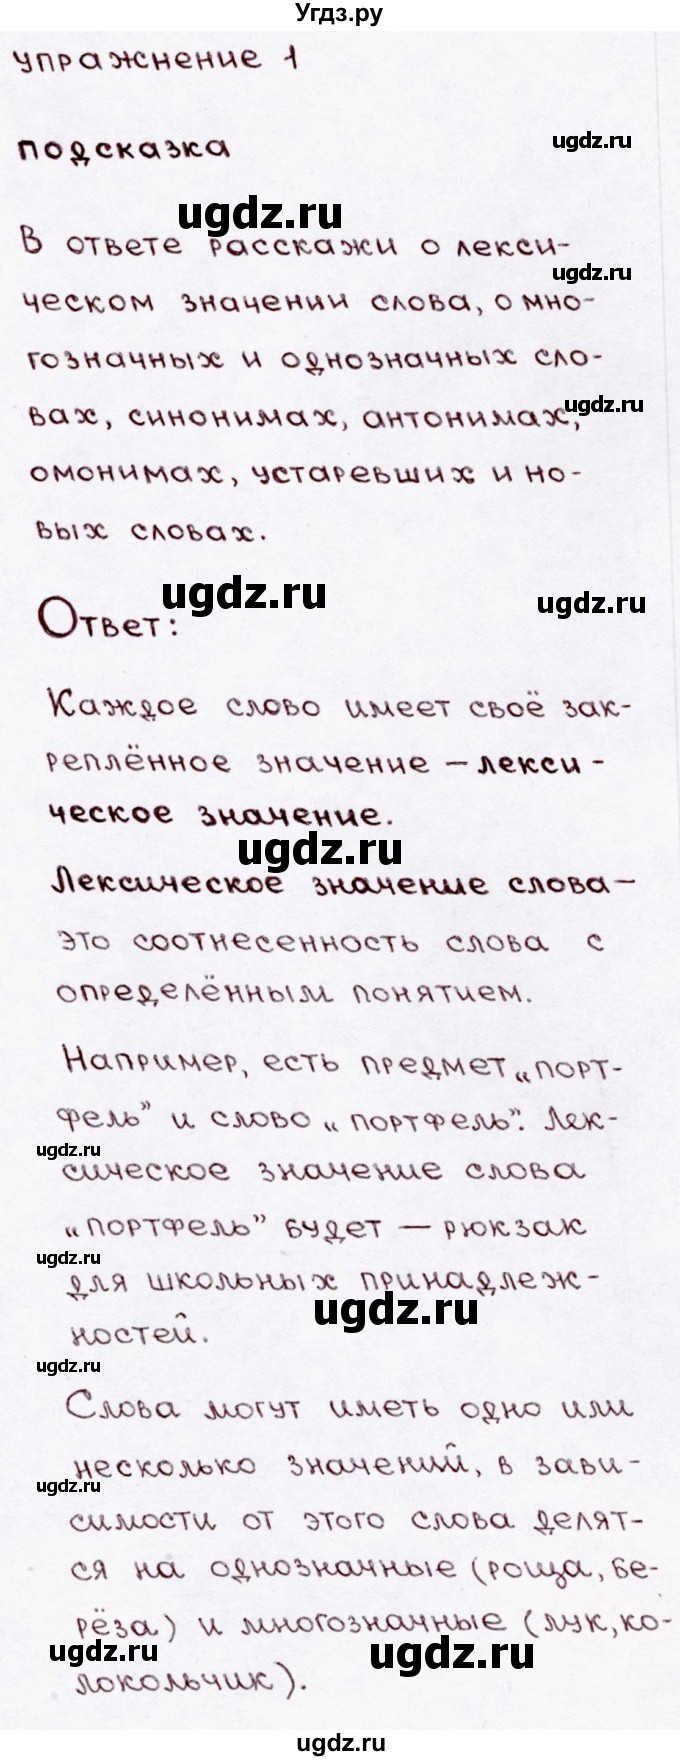 Угдз.ру
упражнение 1
подсказка
ugdz.ru
ugdz.ru
В ответе расскажи о лекси-
ugdz.ru
ческом значении слова, о мно-
гозначных и однозначных сло-
ugdz.ru
вах, синонимах, антонимах,
омонимах, устаревших и но-
вых словах.
ugdz.ru
ugdz.ru
Ответ:
Каждое слово имеет своё зак-
реплённое значение – лекси-
ческое значение.
ugdz.ru
Лексическое значение слова –
это соотнесенность слова с
определённым понятием.
Например, есть предмет „порт-
фель” и слово „портфель”. Лек-
ugdz.ru
сическое значение слова
„портфель” будет – рюкзак
ugdz.ru
для школьных принадлеж-
ugdz.ru
ностей.
ugdz.ru
Слова могут иметь одно или
несколько значений, в зави-
ugdz.ru
симости от этого слова делят-
ся на однозначные (роща, бе-
рёза) и многозначные (лук, ко-
ugdz.ru
ugdz.ru
локольчик).
ugdz.ru